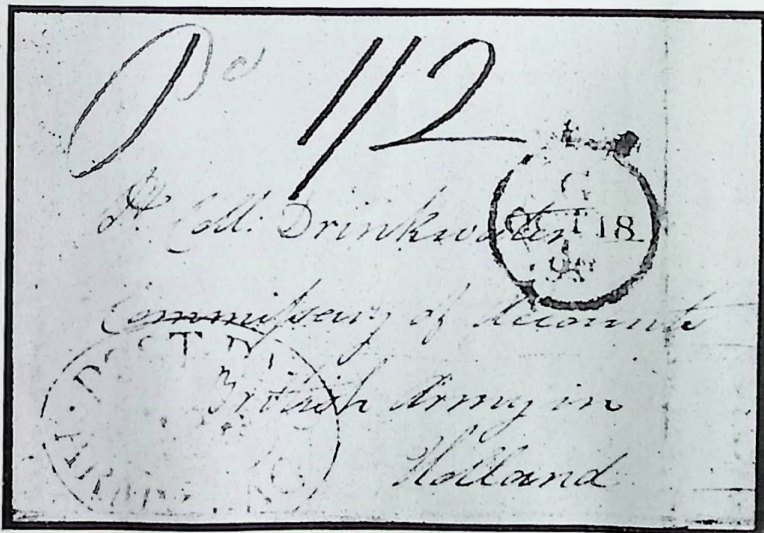 Pd 1/2
Lt. Coll. Drinkwater
Commissary of Accounts
British Army in
Holland
G
OCT 18
POST PAI